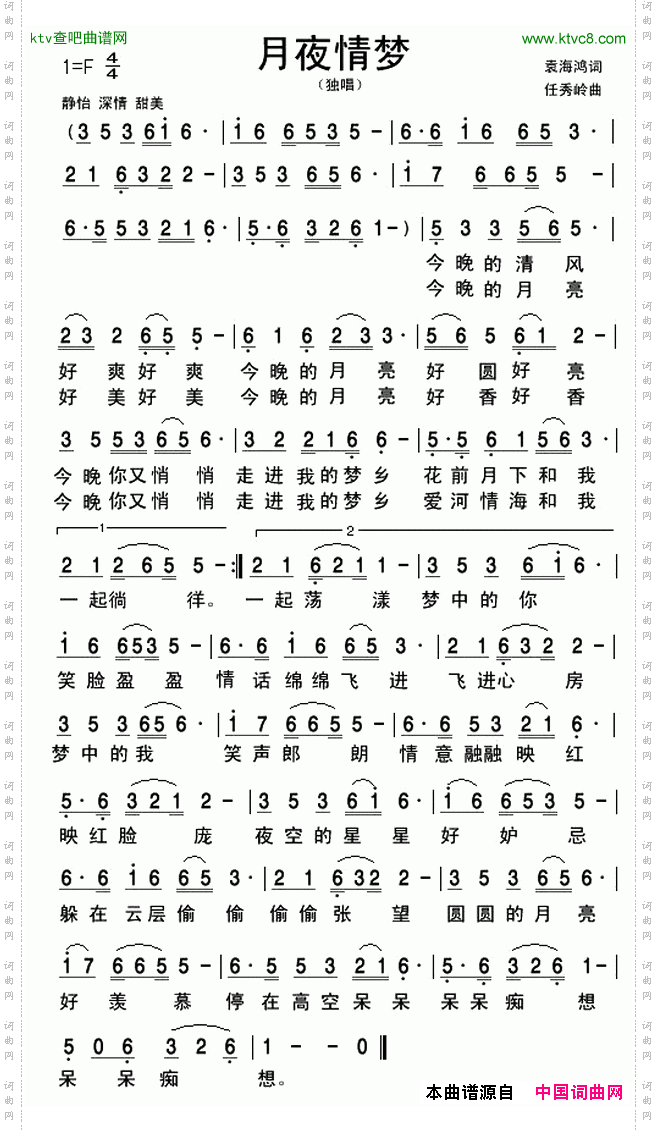 ktv查吧曲谱网
www.ktvc8.com
月夜情梦
(独唱)
1=F 4/4
袁海鸿词
任秀岭曲
静怡 深情 甜美
(3 5 3 6 i 6 · | i 6 6 5 3 5 – | 6 · 6 i 6 6 5 3 · |
2 1 6 3 2 2 – | 3 5 3 6 5 6 · | i 7 6 6 5 5 – |
6 · 5 5 3 2 1 6 · | 5 · 6 3 2 6 1 – ) | 5 3 3 5 6 5 · |
今晚的清风
今晚的月亮
2 3 2 6 5 5 – | 6 1 6 2 3 3 · | 5 6 5 6 1 2 – |
好爽好爽 今晚的月亮 好圆好亮
好美好美 今晚的月亮 好香好香
3 5 5 3 6 5 6 · | 3 2 2 1 6 6 – | 5 · 5 6 1 5 6 3 · |
今晚你又悄悄 走进我的梦乡 花前月下和我
今晚你又悄悄 走进我的梦乡 爱河情海和我
1 2
2 1 2 6 5 5 – :‖ 2 1 6 2 1 1 – | 3 5 3 6 i 6 · |
一起徜徉。 一起荡漾 梦中的你
i 6 6 5 3 5 – | 6 · 6 i 6 6 5 3 · | 2 1 6 3 2 2 – |
笑脸盈盈 情话绵绵飞进 飞进心房
3 5 3 6 5 6 · | i 7 6 6 5 5 – | 6 · 6 5 3 2 1 6 · |
梦中的我 笑声郎朗 情意融融映红
5 · 6 3 2 1 2 – | 3 5 3 6 i 6 · | i 6 6 5 3 5 – |
映红脸庞 夜空的星星 好妒忌
6 · 6 i 6 6 5 3 · | 2 1 6 3 2 2 – | 3 5 3 6 5 6 · |
躲在云层偷偷 偷偷张望 圆圆的月亮
i 7 6 6 5 5 – | 6 · 5 5 3 2 1 6 · | 5 · 5 3 2 6 1 – |
好羡慕 停在高空呆呆 呆呆痴想
5 0 6 3 2 6 | 1 – – 0 ‖
呆呆痴想。
本曲谱源自 中国词曲网